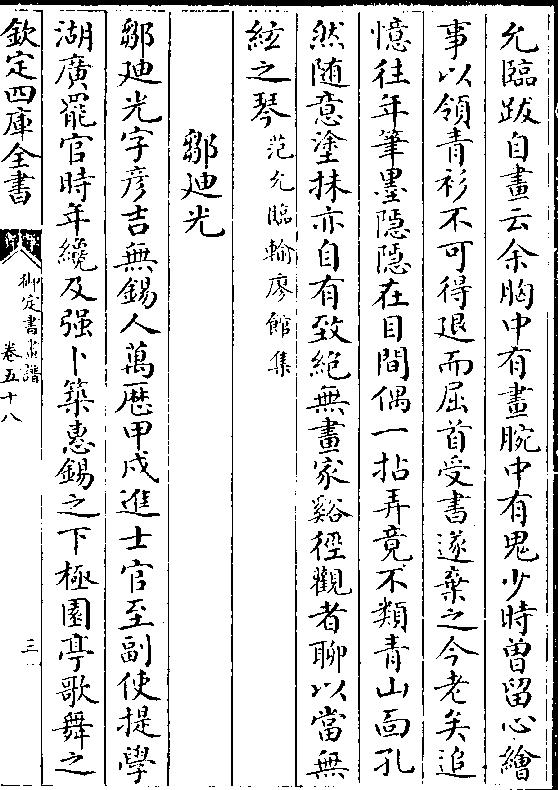 允臨跋自畫云余胸中有畫腕中有鬼少時曾留心繪
事以領青衫不可得退而屈首受書遂棄之今老矣追
憶往年筆墨隱隱在目間偶一拈弄竟不類青山面孔
然随意塗抹亦自有致絶無畫家谿徑觀者聊以當無
絃之琴范允臨輸廖館集
鄒迪光
鄒迪光字彦吉無錫人萬厯甲戌進士官至副使提學
湖廣罷官時年纔及强卜築惠錫之下極園亭歌舞之
欽定四庫全書
御定書畫譜
卷五十八
三